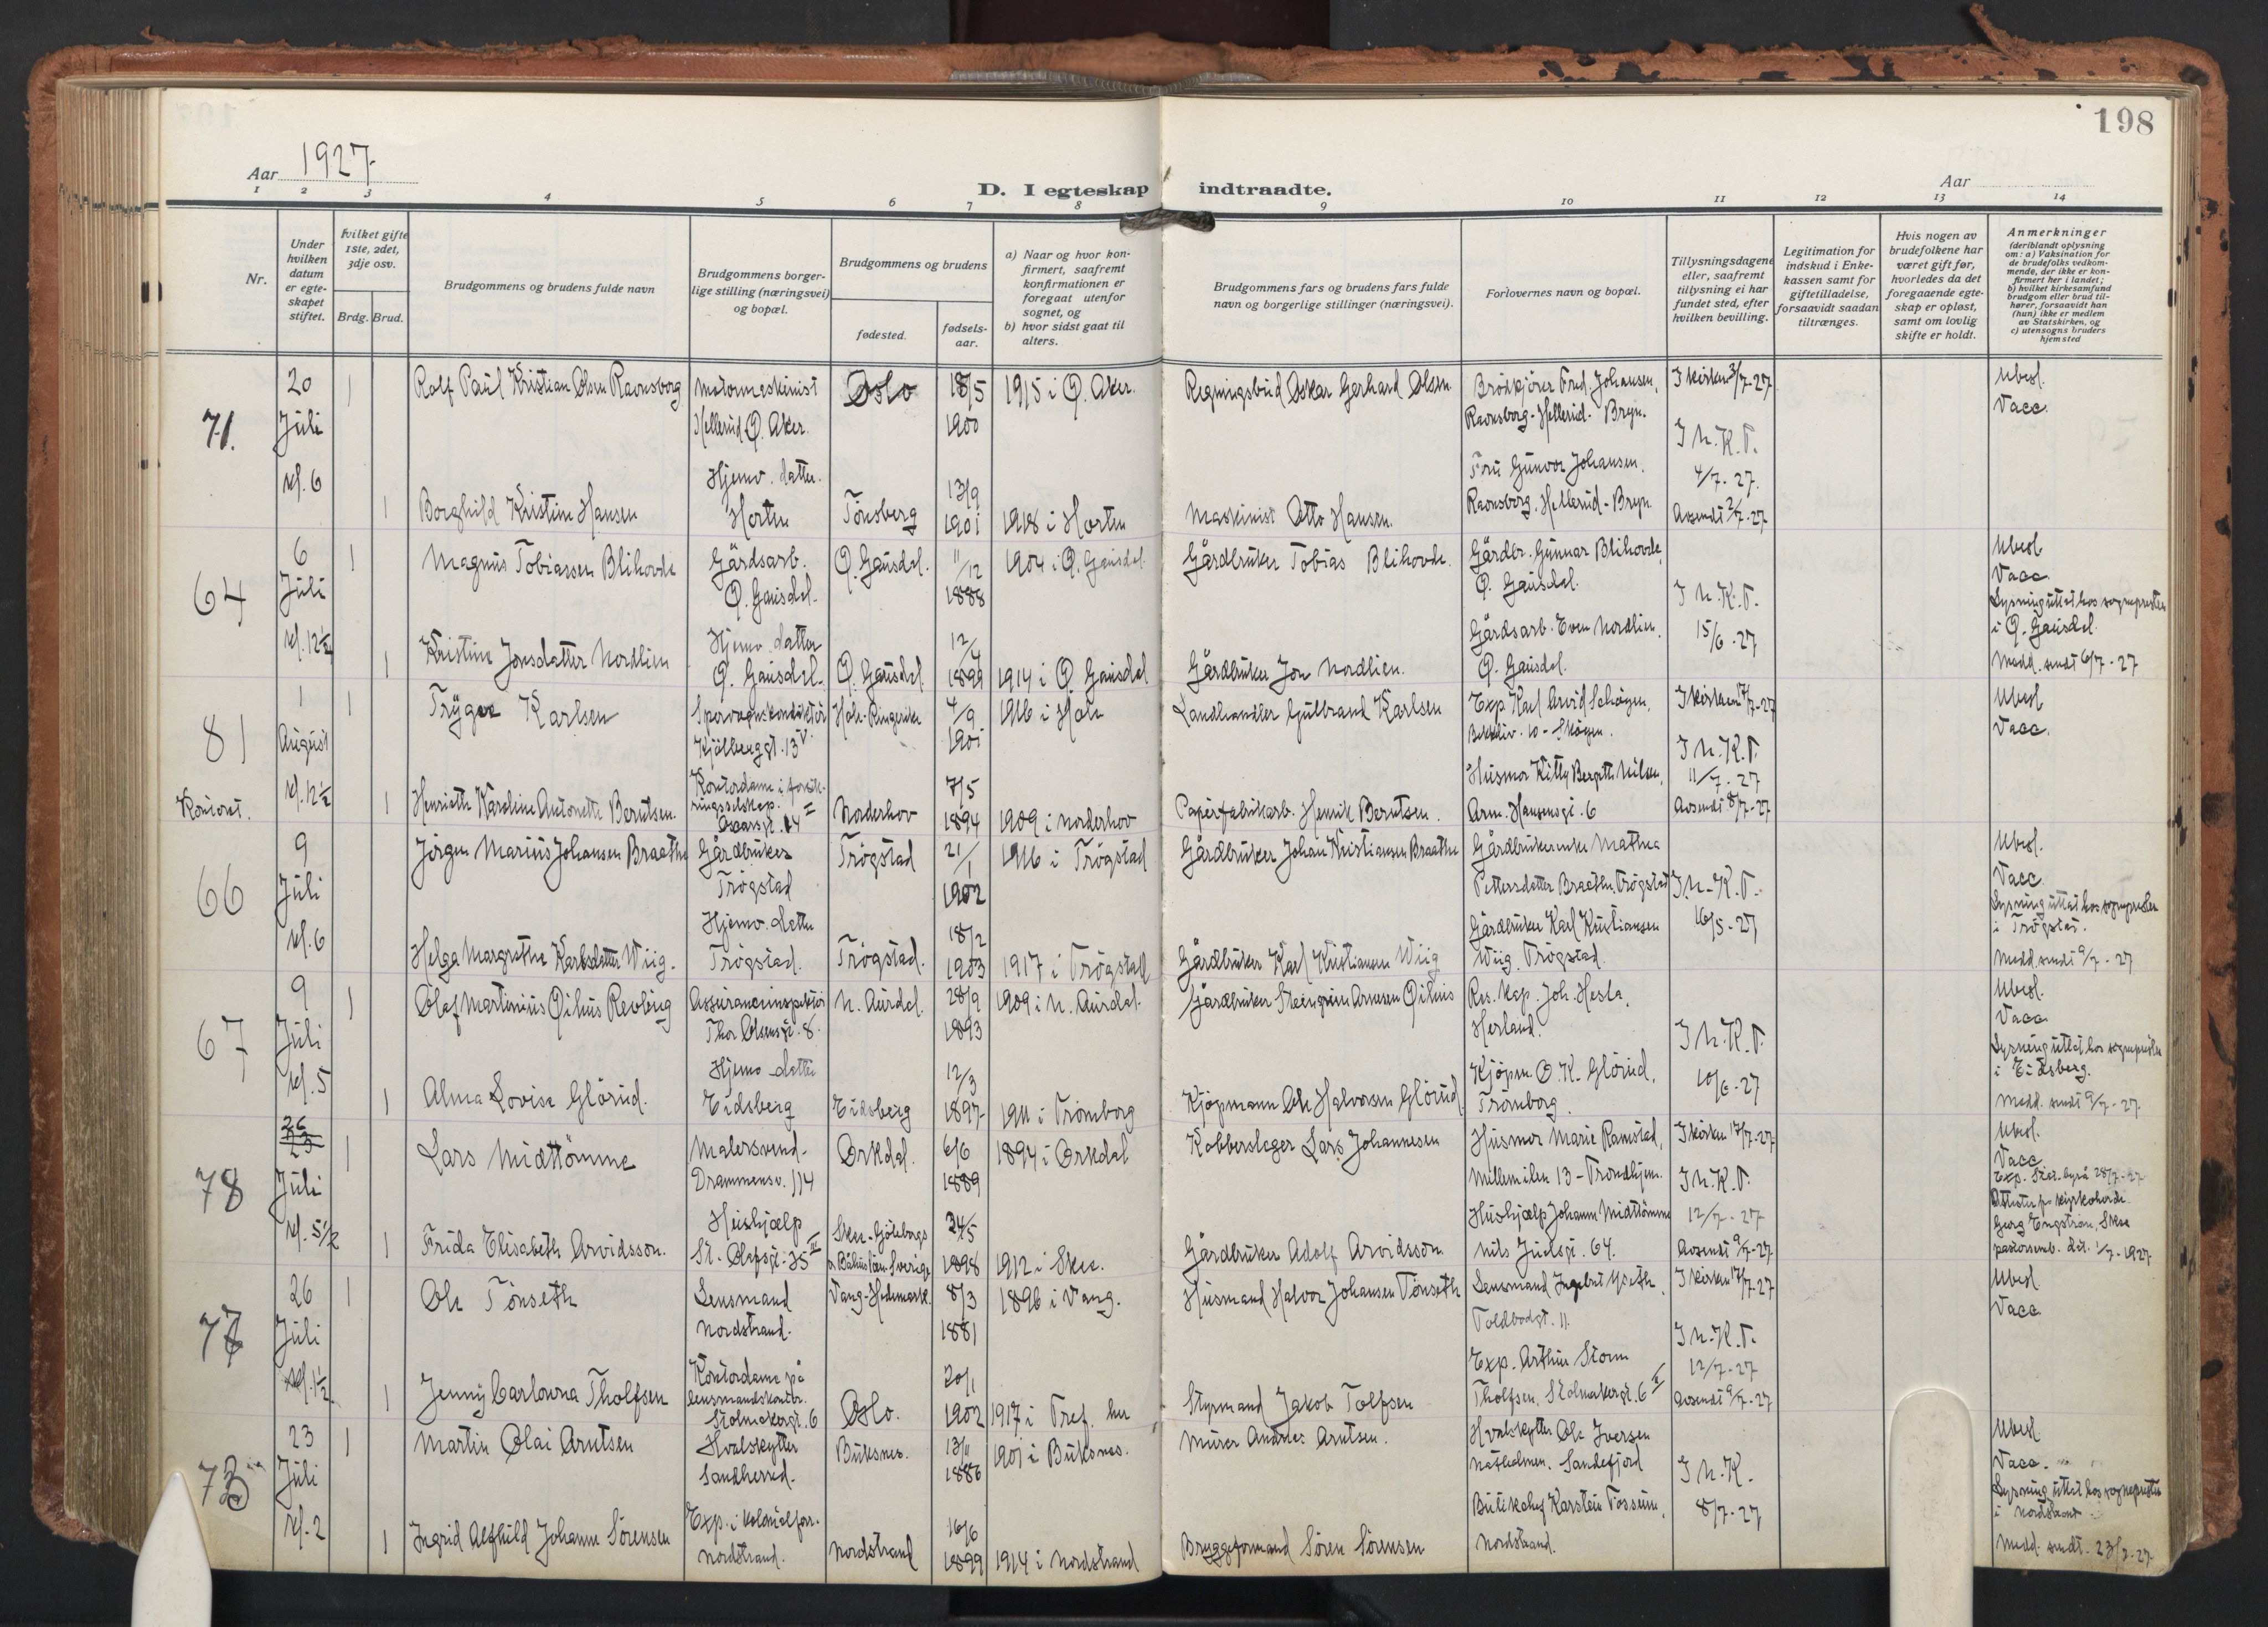 198
Aar 1927
D. I egteskap indtraadte.
Aar
1 2 3 4 5 6 7 8 9 10 11 12 13 14
Nr.
Under hvilken datum er egteskapet stiftet.
Hvilket gifte 1ste, 2det, 3dje osv.
Brdg. Brud.
Brudgommens og brudens fulde navn
Brudgommens borgerlige stilling (næringsvei) og bopæl.
Brudgommens og brudens
fødested.
fødselsaar.
a) Naar og hvor konfirmert, saafremt konfirmationen er foregaat utenfor sognet, og
b) hvor sidst gaat til alters.
Brudgommens fars og brudens fars fulde navn og borgerlige stillinger (næringsvei).
Forlovernes navn og bopæl.
Tillysningsdagene eller, saafremt tillysning ei har fundet sted, efter hvilken bevilling.
Legitimation for indskud i Enkekassen samt for giftetilladelse, forsaavidt saadan tiltrænges.
Hvis nogen av brudefolkene har været gift før, hvorledes da det foregaaende egteskap er opløst, samt om lovlig skifte er holdt.
Anmerkninger (deriblandt oplysning om: a) Vaksination for de brudefolks vedkommende, der ikke er konfirmert her i landet; b) hvilket kirkesamfund brudgom eller brud tilhører, forsaavidt han (hun) ikke er medlem av Statskirken, og c) utensogns bruders hjemsted
71.
20 Juli kl. 6
1 Rolf Paul Kristian Olsen Ravnsborg
Motormaskinist
Hellerud Ø. Aker.
Oslo
18/5 1900
1915 i Ø. Aker.
Regningsbud Oskar Gerhard Olsen.
Brödkjörer Fred. Johansen,
Ravnsborg-Hellerud. Bryn.
I kirken 3/7-27
I N.K.T.
4/7. 27.
Avsendt 2/7-27
Ubesl.
Vacc.
1 Borghild Kristine Hansen
Hjemv. datter.
Horten
Tönsberg
13/9 1901
1918 i Horten
Maskinist Otto Hansen.
Fru Gunvor Johansen.
Ravnsborg, Hellerud-Bryn.
64
6 Juli kl. 12½
1 Magnus Tobiassen Blihovde
Gårdsarb.
Ø. Gausdal.
Ø. Gausdal.
11/12 1888
1904 i Ø. Gausdal.
Gårdbruker Tobias Blihovde.
Gårdbr. Gunnar Blihovde,
Ø. Gausdal.
I N.K.T.
15/6-27
Ubesl.
Vacc.
Lysning uttat hos sognepresten
i Ø. Gausdal.
Medd. sendt 6/7-27
1 Kristine Jonsdatter Nordlien
Hjemv. datter
Ø. Gausdal.
Ø. Gausdal.
1899
1914 i Ø. Gausdal
Gårdbruker Jon Nordlien.
Gårdsarb. Even Nordlien.
Ø. Gausdal.
81
Kontoret.
1 August kl. 12½
1 Trygve Karlsen
Sporvognskonduktör
Kjölberggt. 13 V
Hole-Ringerike
4/9 1901
1916 i Hole
Landhandler Gulbrand Karlsen
Exp. Karl Arvid
I kirken 17/7-27
I N.K.T.
11/7-27
Avsendt 8/7-27
Ubesl
Vacc.
1 Henriette Karoline Antonette Berntsen.
Kontordame i forsikringsselskap.
Oscarsgt. 14 II
Norderhov
7/5 1894
1909 i Norderhov
Papirfabrikarb. Henrik Berntsen.
Husmor Kitty Bergitte Nilsen,
Arn. Hansensgt. 6
66
9 Juli kl. 6
Jörgen Marius Johansen Braathe
Gårdbruker
Trögstad
Trögstad
21/1 1902
1916 i Trögstad
Gårdbruker Johan Kristiansen Braathe
Gårdbrukerenke Mathea
Pettersdatter Braathe, Trögstad
I N.K.T.
16/5-27
Ubesl.
Vacc
Lysning uttat hos sognepresten
i Trögstad.
Medd. sendt 9/7-27
Helga Margrethe Karlsdatter Wiig.
Hjemv. datter
Trögstad.
Trögstad.
18/2 1903
1917 i Trögstad
Gårdbruker Karl Kristiansen Wiig
Gårdbruker Karl Kristiansen
Wiig, Trögstad.
67
9 Juli kl. 5
1 Olaf Martinius Revling
Assuranceinspektör
Thor Olsensgt. 8.
N. Aurdal.
28/9 1893
1909 i N. Aurdal.
Gårdbruker Steingrim Arnesen
Res. kap. Joh. Hesla,
Herland.
I N.K.T.
10/6-27
Ubesl.
Vacc
Lysning uttat hos sognepresten
i Eidsberg.
Medd. sendt 9/7-27.
1 Alma Lovise Glörud.
Hjemv. datter
Eidsberg
Eidsberg
12/3 1897
1911 i Trömborg
Kjöpmann Ole Halvorsen Glörud
Kjöpm. O. K. Glörud,
Trömborg.
78
26 Juli kl. 5½
1 Lars Midttömme
Malersvend.
Drammensv. 114
Orkdal.
6/6 1889
1894 i Orkdal
Kobberslager Lars Johannesen
Husmor Marie Ramstad,
Mellemilen 13-Trondhjem.
I kirken 17/7-27
I N.K.T.
12/7-27
Avsendt 9/7-27
Ubesl.
Vacc
Exp. Stat. byrå 28/7-27
Attester fra kyrkoherde
Georg Engström, Skee
pastorsemb. dat. 1/7-1927
1 Frida Elisabeth Arvidsson.
Hushjælp
St. Olafsgt. 35 III
Skee-Göteborgs
o Båhus län Sverige
24/5 1898
1912 i Skee.
Gårdbruker Adolf Arvidsson.
Hushjælp Johanne Midttömme
Nils Juelsgt. 64.
77
26 Juli kl. 1½
1 Ole Tönseth
Lensmand
Nordstrand.
Vang-Hedemark.
8/3 1881
1896 i Vang.
Husmand Halvor Johansen Tönseth
Lensmand Ingebret
Toldbodgt. 11.
I kirken 17/7-27
I N.K.T.
12/7-27
Avsendt 9/7-27
Ubesl
Vacc
1 Jenny Carlowna Tholfsen
Kontordame på
lensmandskontor.
Stolmakergt. 6
Oslo.
20/1 1902
1917 i Tref. her
Styrmand Jakob Tolfsen
Exp. Arthur Storm
Tholfsen, Stolmakergt. 6 II
73
23 Juli kl. 2
1 Martin Olai Arntsen
Hvalskytter
Sandherred.
Buksnes.
13/11 1886
1901 i Buksnes.
Murer Andreas Arntsen.
Hvalskytter Ole Iversen
Sandefjord
I N.K.
8/7-27
Ubesl
Vacc.
Lysning uttat hos sognepresten
i Nordstrand
Medd. sendt. 23/7-27.
1 Ingrid Alfhild Johanne Sörensen
Exp. i kolonialforr.
Nordstrand.
Nordstrand
16/6 1899
1914 i Nordstrand
Bryggeformand Sören Sörensen
Butikchef Karstein Fosseim,
Nordstrand.